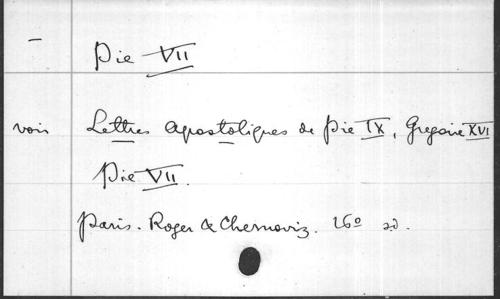 Pie VII
voir Lettres Apostoliques de Pie IX, Grégoire XVI
Pie VII.
Paris. Roger & Chernoviz. 16º sd.